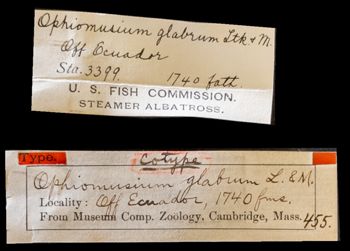 Ophiomusium glabrum Ltk & M.
Off Ecuador
Sta. 3399. 1740 fath.
U. S. FISH COMMISSION.
STEAMER ALBATROSS.
Type. Cotype
Ophiomusium glabrum L. & M.
Locality: Off Ecuador, 1740 fms.
From Museum Comp. Zoölogy, Cambridge, Mass. 455.